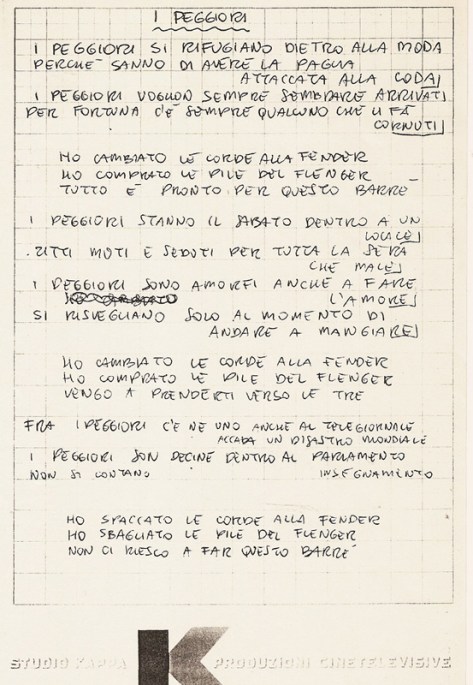 I PEGGIORI
I PEGGIORI SI RIFUGIANO DIETRO ALLA MODA
PERCHE' SANNO DI AVERE LA PAGLIA
ATTACCATA ALLA CODA
I PEGGIORI VOGLION SEMPRE SEMBRARE ARRIVATI
PER FORTUNA C'È SEMPRE QUALCUNO CHE LI FÀ
CORNUTI
HO CAMBIATO LE CORDE ALLA FENDER
HO COMPRATO LE PILE DEL FLENGER
TUTTO E' PRONTO PER QUESTO BARRÈ
I PEGGIORI STANNO IL SABATO DENTRO A UN
LOCALE
ZITTI MUTI E SEDUTI PER TUTTA LA SERA
CHE MALE
I PEGGIORI SONO AMORFI ANCHE A FARE
L'AMORE
SI RISVEGLIANO SOLO AL MOMENTO DI
ANDARE A MANGIARE
HO CAMBIATO LE CORDE ALLA FENDER
HO COMPRATO LE PILE DEL FLENGER
VENGO A PRENDERTI VERSO LE TRE
FRA I PEGGIORI C'È NE UNO ANCHE AL TELEGIORNALE
ACCADA UN DISASTRO MONDIALE
I PEGGIORI SON DECINE DENTRO AL PARLAMENTO
NON SI CONTANO INSEGNAMENTO
HO SPACCATO LE CORDE ALLA FENDER
HO SBAGLIATO LE PILE DEL FLENGER
NON CI RIESCO A FAR QUESTO BARRÈ
STUDIO KAPPA K PRODUZIONI CINETELEVISIVE